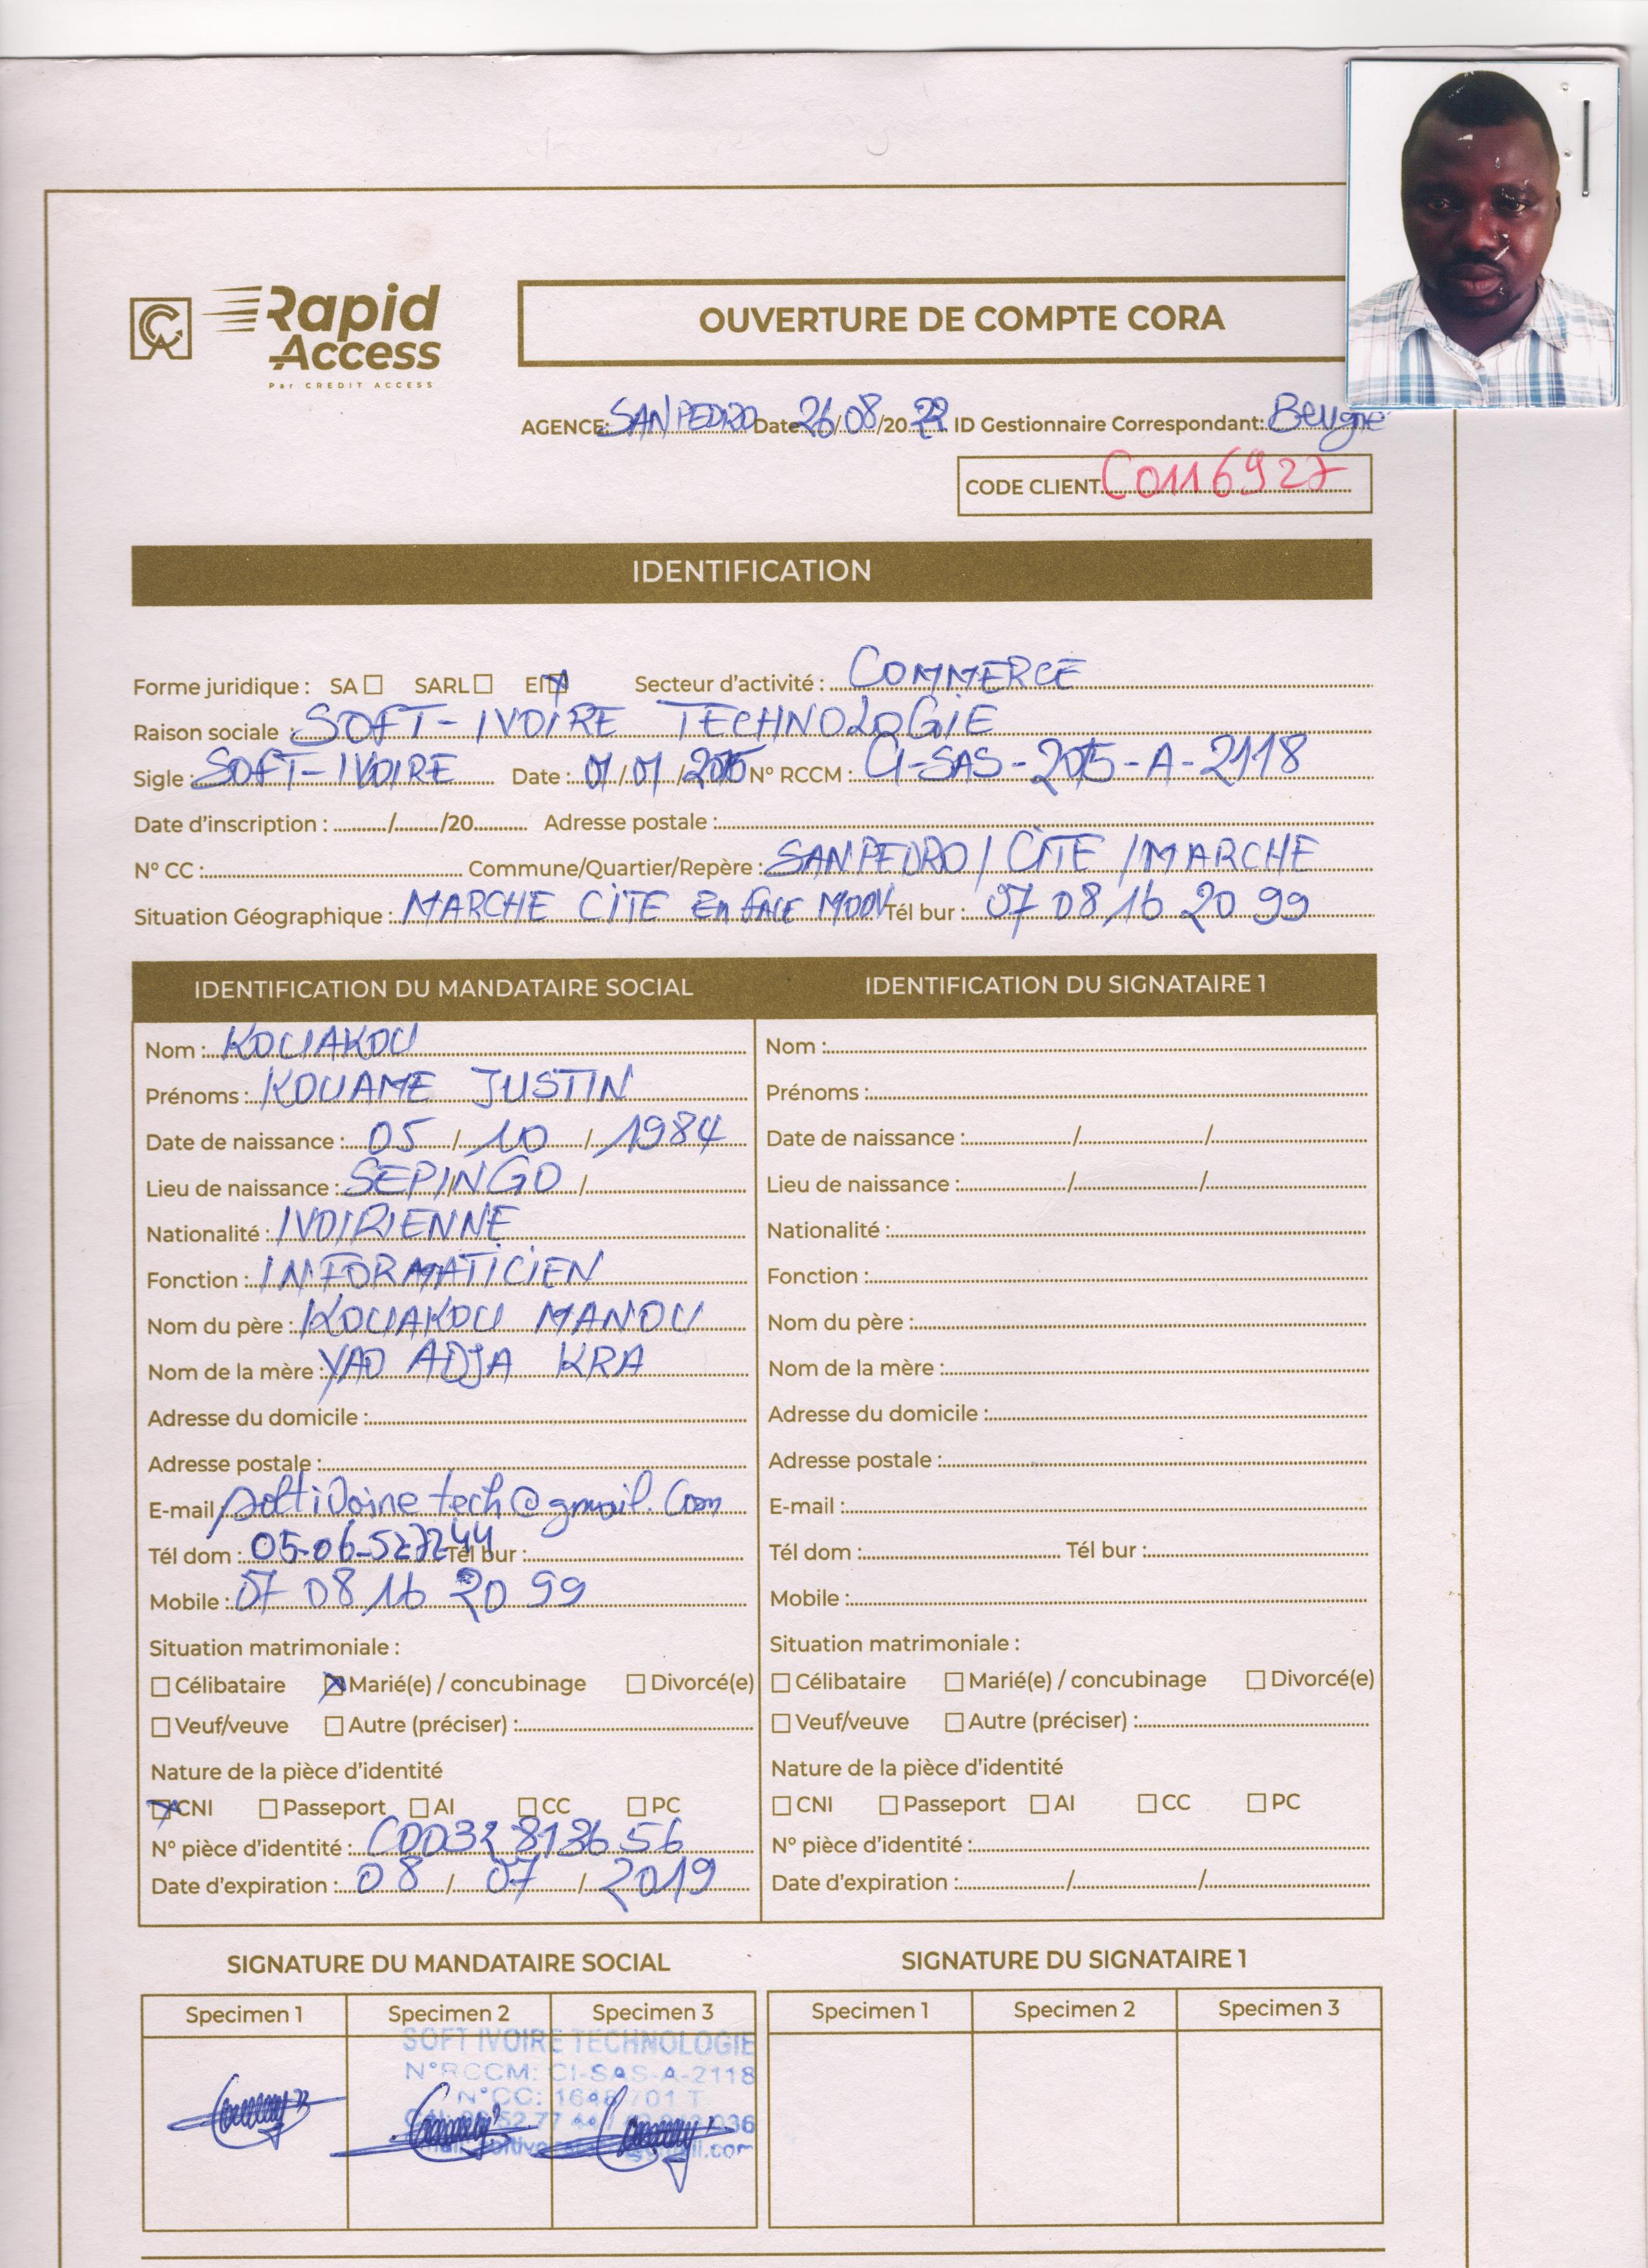 Rapid
Access
Par CREDIT ACCESS
OUVERTURE DE COMPTE CORA
AGENCE: SAN PEDRO Date 26/08/2022 ID Gestionnaire Correspondant: Beugré
CODE CLIENT C0116927
IDENTIFICATION
Forme juridique : SA SARL EI Secteur d'activité : COMMERCE
Raison sociale : SOFT-IVOIRE TECHNOLOGIE
Sigle : SOFT-IVOIRE Date : 01/01/2015 N° RCCM : CI-SAS-2015-A-2118
Date d'inscription : ........../......../20.......... Adresse postale :
N° CC : Commune/Quartier/Repère : SANPEDRO/CITE/MARCHE
Situation Géographique : MARCHE CITE En face MOOV Tél bur : 07 08 16 20 99
IDENTIFICATION DU MANDATAIRE SOCIAL IDENTIFICATION DU SIGNATAIRE 1
Nom : KOUAKOU Nom :
Prénoms : KOUAME JUSTIN Prénoms :
Date de naissance : 05 / 10 / 1984 Date de naissance : / /
Lieu de naissance : SEPINGO / Lieu de naissance : / /
Nationalité : IVOIRIENNE Nationalité :
Fonction : INFORMATICIEN Fonction :
Nom du père : KOUAKOU MANOU Nom du père :
Nom de la mère : YAO ADJA KRA Nom de la mère :
Adresse du domicile : Adresse du domicile :
Adresse postale : Adresse postale :
E-mail softivoire tech@gmail.com E-mail :
Tél dom : 05-06-527244 Tél bur : Tél dom : Tél bur :
Mobile : 07 08 16 20 99 Mobile :
Situation matrimoniale : Situation matrimoniale :
Célibataire Marié(e) / concubinage Divorcé(e) Célibataire Marié(e) / concubinage Divorcé(e)
Veuf/veuve Autre (préciser) : Veuf/veuve Autre (préciser) :
Nature de la pièce d'identité Nature de la pièce d'identité
CNI Passeport AI CC PC CNI Passeport AI CC PC
N° pièce d'identité : C0032813656 N° pièce d'identité :
Date d'expiration : 08 / 07 / 2019 Date d'expiration : / /
SIGNATURE DU MANDATAIRE SOCIAL SIGNATURE DU SIGNATAIRE 1
Specimen 1 Specimen 2 Specimen 3 Specimen 1 Specimen 2 Specimen 3
SOFT IVOIRE TECHNOLOGIE
N°RCCM: CI-SAS-A-2118
N°CC: 1648701 T